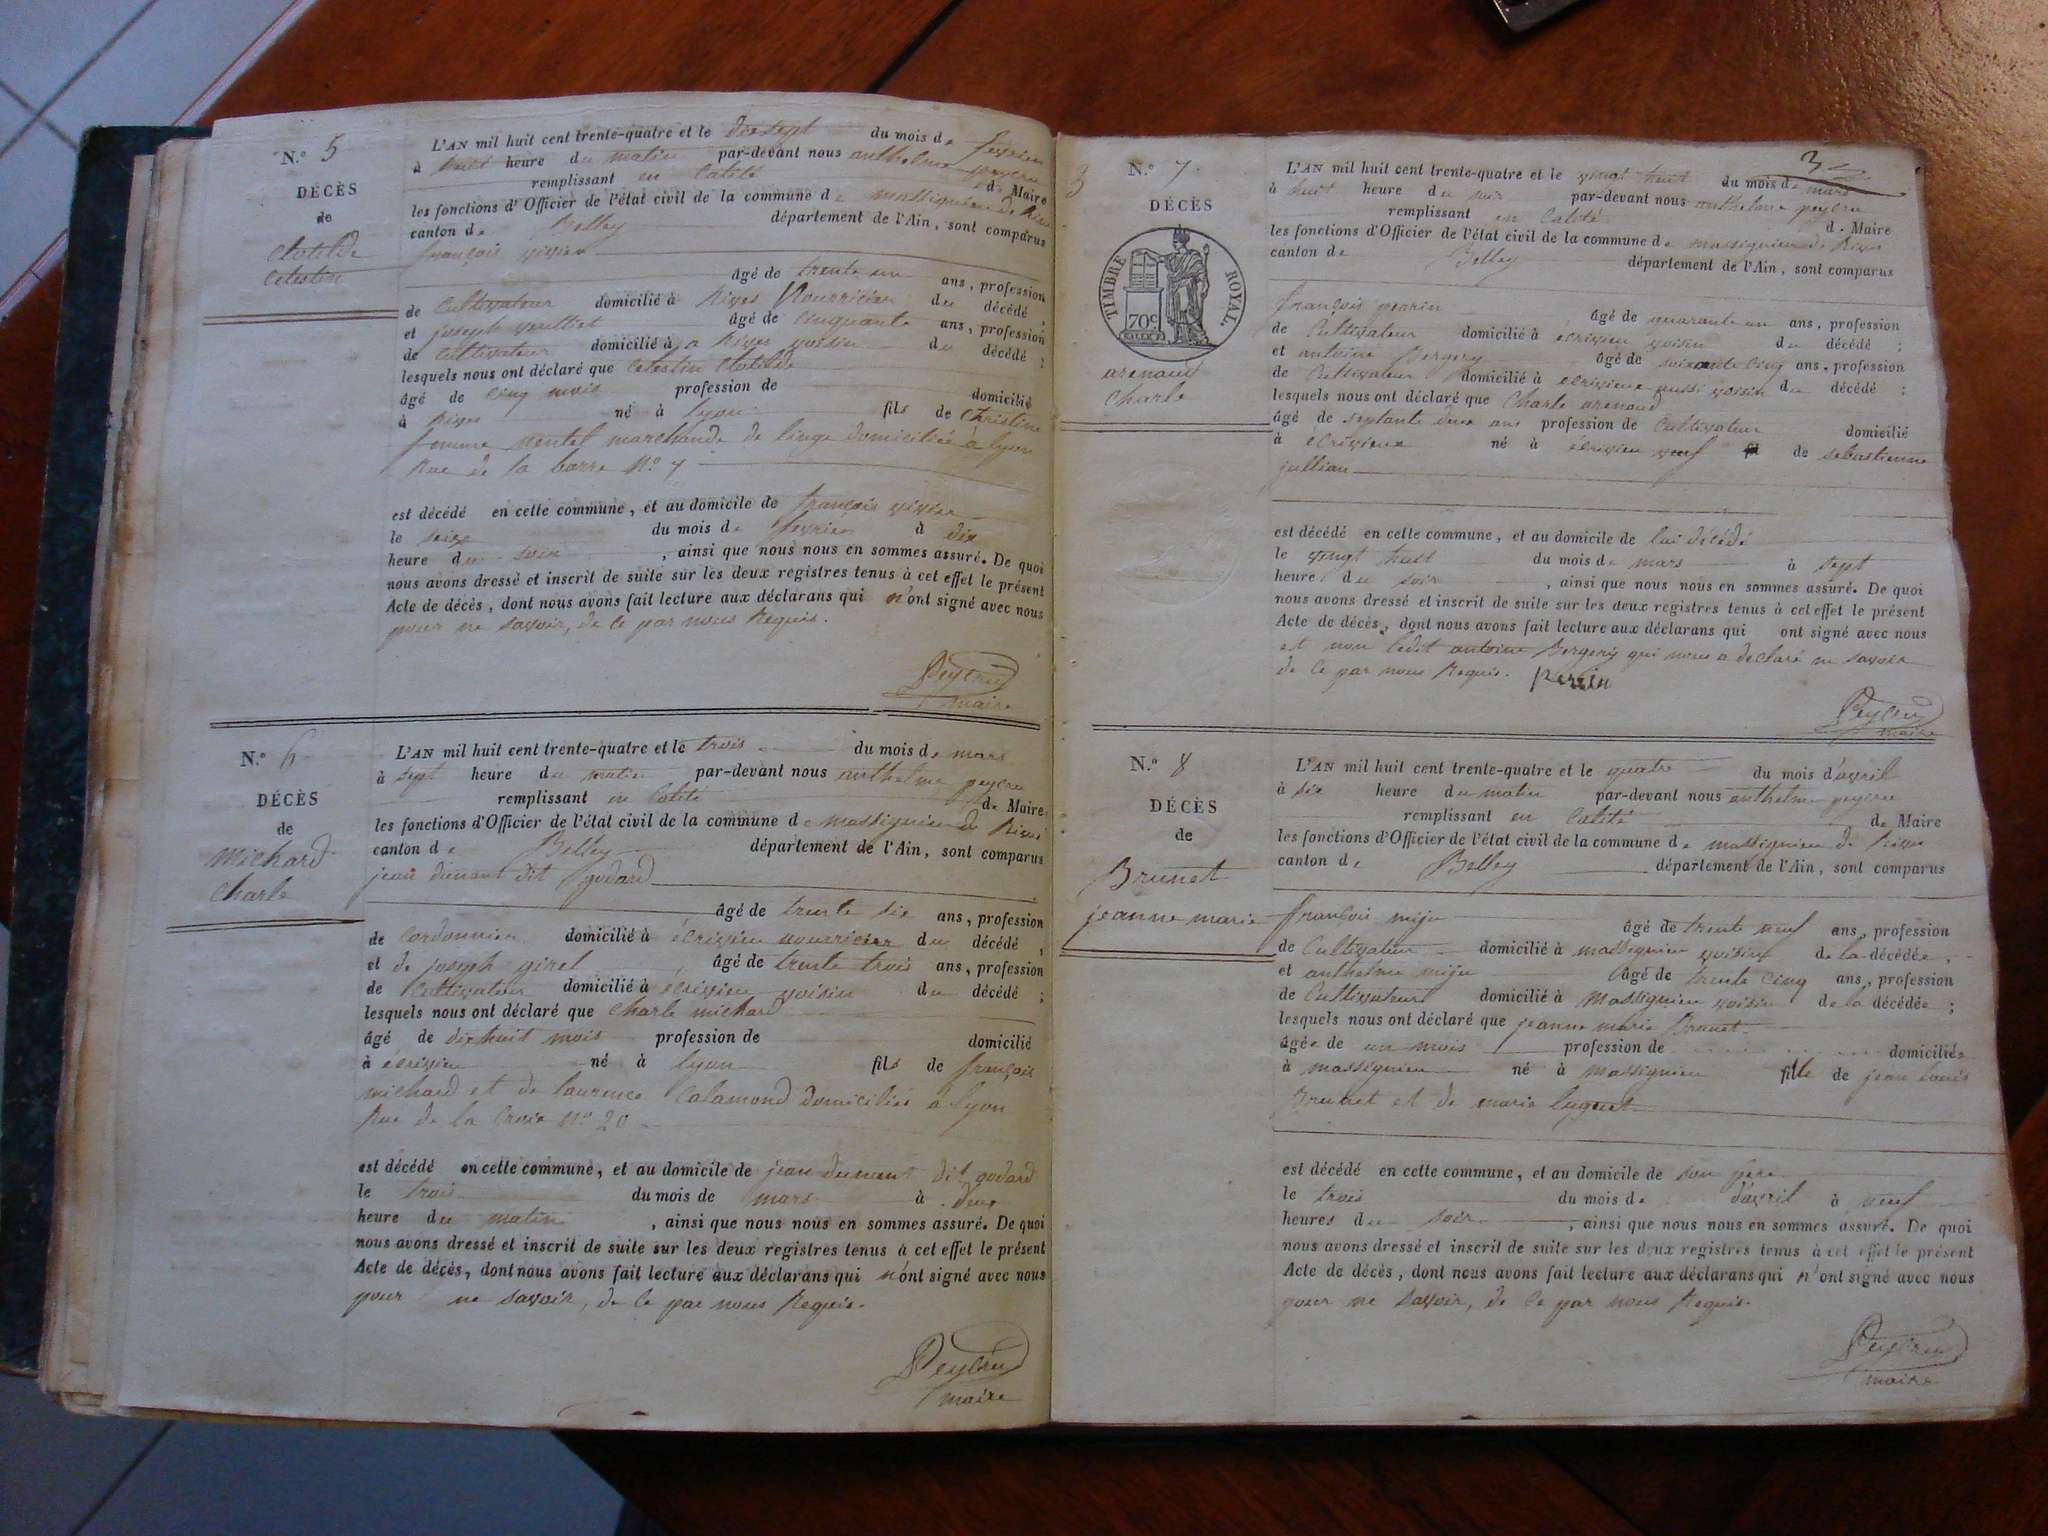 N.° 5
DÉCÈS
de
Clotilde
Celestin
L'AN mil huit cent trente-quatre et le dix sept du mois de fevrier
à huit heure du matin par-devant nous anthelme peycru
remplissant en Calité de Maire
les fonctions d'Officier de l'état civil de la commune de massignieu de Rives
canton de Belley département de l'Ain, sont comparus
françois vivier
âgé de trente un ans, profession
de Cultivateur domicilié à Rives Nourricier du décédé,
et joseph âgé de cinquante ans, profession
de Cultivateur domicilié à a Rives voisin du décédé ;
lesquels nous ont déclaré que Celestin Clotilde
âgé de cinq mois profession de domicilié
à Rives né à lyon fils de Christine
femme ventel marchande de linge domiciliée à lyon
Rue de la barre N° 7
est décédé en cette commune, et au domicile de françois vivier
le seize du mois de fevrier à dix
heure du soir, ainsi que nous nous en sommes assuré. De quoi
nous avons dressé et inscrit de suite sur les deux registres tenus à cet effet le présent
Acte de décès, dont nous avons fait lecture aux déclarans qui n'ont signé avec nous
pour ne savoir, de ce par nous Requis.
Peycru
maire
N.° 6
DÉCÈS
de
Michard
Charle
L'AN mil huit cent trente-quatre et le trois du mois de mars
à sept heure du matin par-devant nous anthelme peycru
remplissant en Calité de Maire
les fonctions d'Officier de l'état civil de la commune de massignieu de Rives
canton de Belley département de l'Ain, sont comparus
jean dumant dit godard
âgé de trente six ans, profession
de Cordonnier domicilié à écrivieu nourricier du décédé,
et de joseph girel âgé de trente trois ans, profession
de Cultivateur domicilié à écrivieu voisin du décédé ;
lesquels nous ont déclaré que Charle michard
âgé de dix huit mois profession de domicilié
à écrivieu né à lyon fils de françois
michard et de laurence Calamond domiciliés à lyon
Rue de la Croix N° 20
est décédé en cette commune, et au domicile de jean dumant dit godard
le trois du mois de mars à deux
heure du matin, ainsi que nous nous en sommes assuré. De quoi
nous avons dressé et inscrit de suite sur les deux registres tenus à cet effet le présent
Acte de décès, dont nous avons fait lecture aux déclarans qui n'ont signé avec nous
pour ne savoir, de ce par nous Requis.
Peycru
maire
3
N.° 7
DÉCÈS
TIMBRE ROYAL.
70c
arenaud
Charle
L'AN mil huit cent trente-quatre et le vingt huit du mois de mars
à huit heure du soir par-devant nous anthelme peycru
remplissant en Calité de Maire
les fonctions d'Officier de l'état civil de la commune de massignieu de Rives
canton de Belley département de l'Ain, sont comparus
françois perrin
âgé de quarante un ans, profession
de Cultivateur domicilié à écrivieu voisin du décédé ;
et antoine Bergery âgé de soixante cinq ans, profession
de Cultivateur domicilié à écrivieux aussi voisin du décédé ;
lesquels nous ont déclaré que Charle arenaud
âgé de septante deux ans profession de Cultivateur domicilié
à écrivieux né à écrivieu veuf de sebastienne
jullian
est décédé en cette commune, et au domicile de lui décédé
le vingt huit du mois de mars à sept
heure du soir, ainsi que nous nous en sommes assuré. De quoi
nous avons dressé et inscrit de suite sur les deux registres tenus à cet effet le présent
Acte de décès, dont nous avons fait lecture aux déclarans qui ont signé avec nous
et non ledit antoine Bergery qui nous a declaré ne savoir
de ce par nous Requis. Perrin
Peycru
maire
N.° 8
DÉCÈS
de
Brunet
jeanne marie
L'AN mil huit cent trente-quatre et le quatre du mois d'avril
à six heure du matin par-devant nous anthelme peycru
remplissant en Calité de Maire
les fonctions d'Officier de l'état civil de la commune de massignieu de Rives
canton de Belley département de l'Ain, sont comparus
françois miju
âgé de trente neuf ans, profession
de Cultivateur domicilié à massignieu voisin de la décédée,
et anthelme miju âgé de trente cinq ans, profession
de Cultivateur domicilié à Massignieu voisin de la décédée ;
lesquels nous ont déclaré que jeanne marie Brunet
âgée de un mois profession de domiciliée
à massignieu né à Massignieu fille de jean louis
Brunet et de marie luquet
est décédé en cette commune, et au domicile de son père
le trois du mois de d'avril à neuf
heures du soir, ainsi que nous nous en sommes assuré. De quoi
nous avons dressé et inscrit de suite sur les deux registres tenus à cet effet le présent
Acte de décès, dont nous avons fait lecture aux déclarans qui n'ont signé avec nous
pour ne savoir, de ce par nous Requis.
Peycru
maire